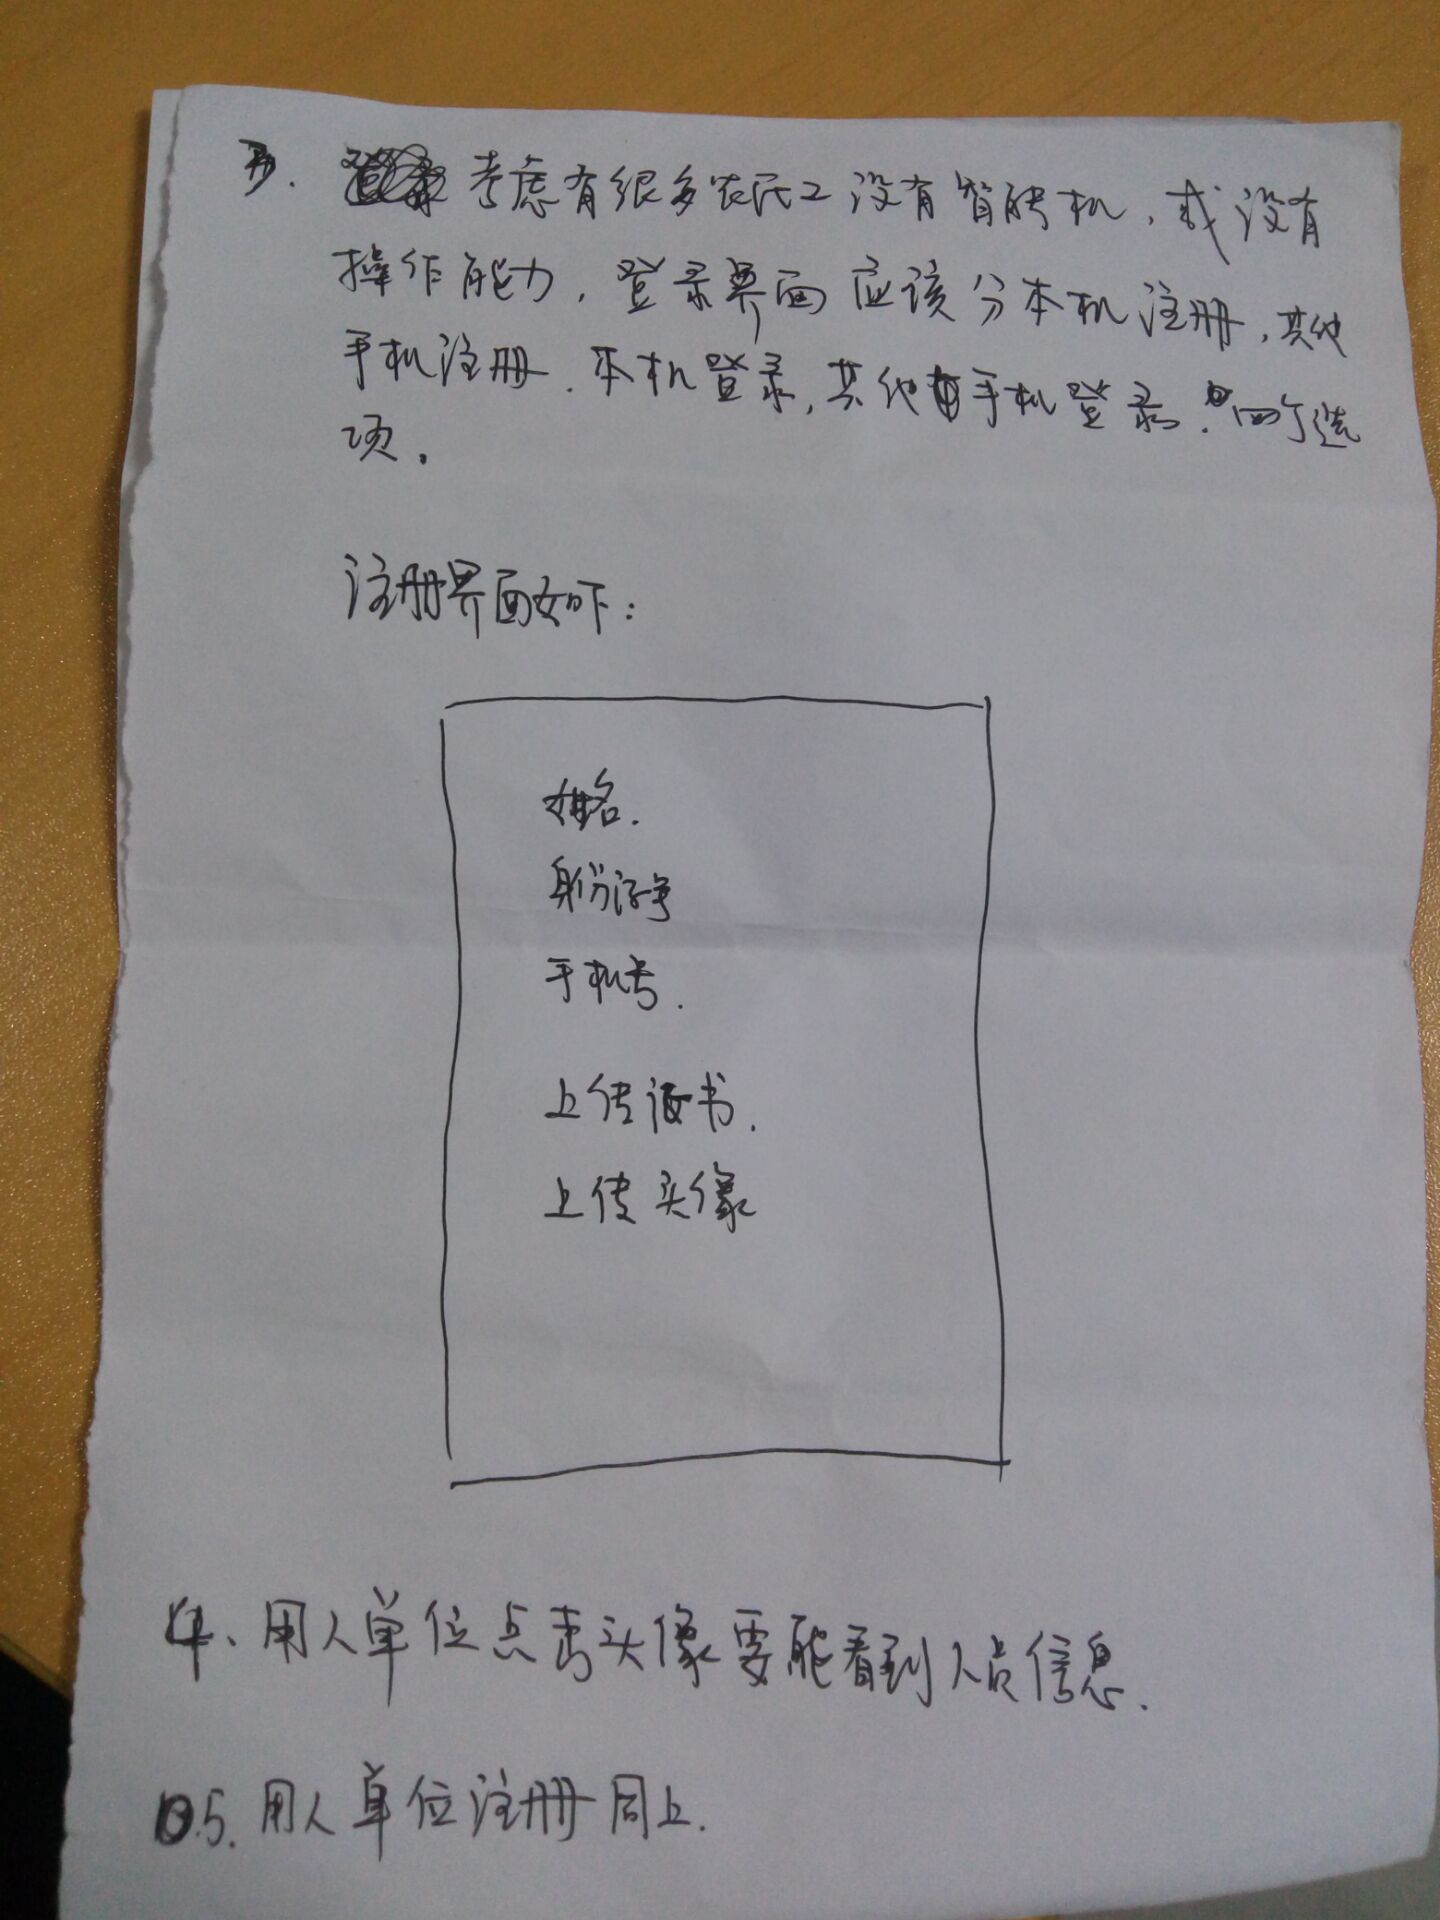 3. 考虑有很多农民工没有智能机，或没有
操作能力，登录界面应该分本机注册，其他
手机注册．本机登录，其他手机登录．四个选
项．
注册界面如下：
姓名．
身份证号
手机号．
上传证书．
上传头像
4、用人单位点击头像要能看到人员信息．
5．用人单位注册同上．